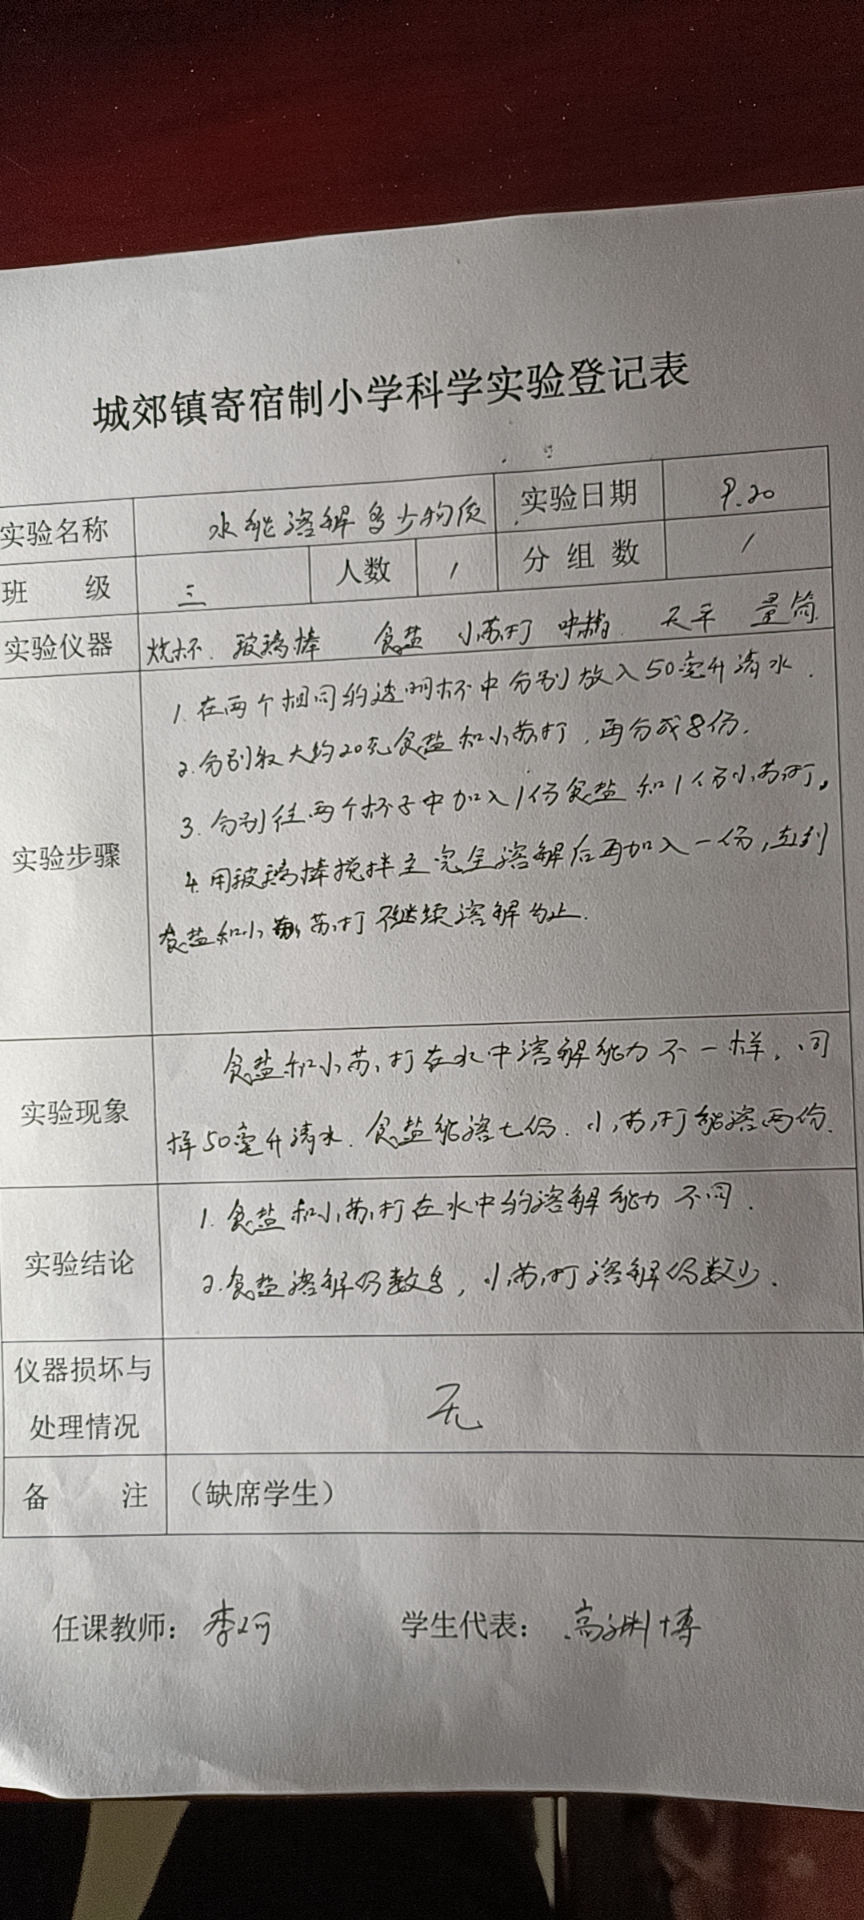 城郊镇寄宿制小学科学实验登记表
实验名称 水能溶解多少物质 实验日期 9.20
班 级 三 人数 1 分组数 1
实验仪器 烧杯. 玻璃棒 食盐 小苏打 味精. 天平 量筒
实验步骤
1. 在两个相同的透明杯中分别放入50毫升清水.
2. 分别取大约20克食盐和小苏打, 再分成8份.
3. 分别往两个杯子中加入1份食盐和1份小苏打。
4. 用玻璃棒搅拌至完全溶解后再加入一份, 直到
食盐和小苏打不继续溶解为止.
实验现象
食盐和小苏打在水中溶解能力不一样. 同
样50毫升清水. 食盐能溶七份. 小苏打能溶两份.
实验结论
1. 食盐和小苏打在水中的溶解能力不同.
2. 食盐溶解份数多, 小苏打溶解份数少.
仪器损坏与
处理情况 无
备 注 (缺席学生)
任课教师: 李 学生代表: 高 博